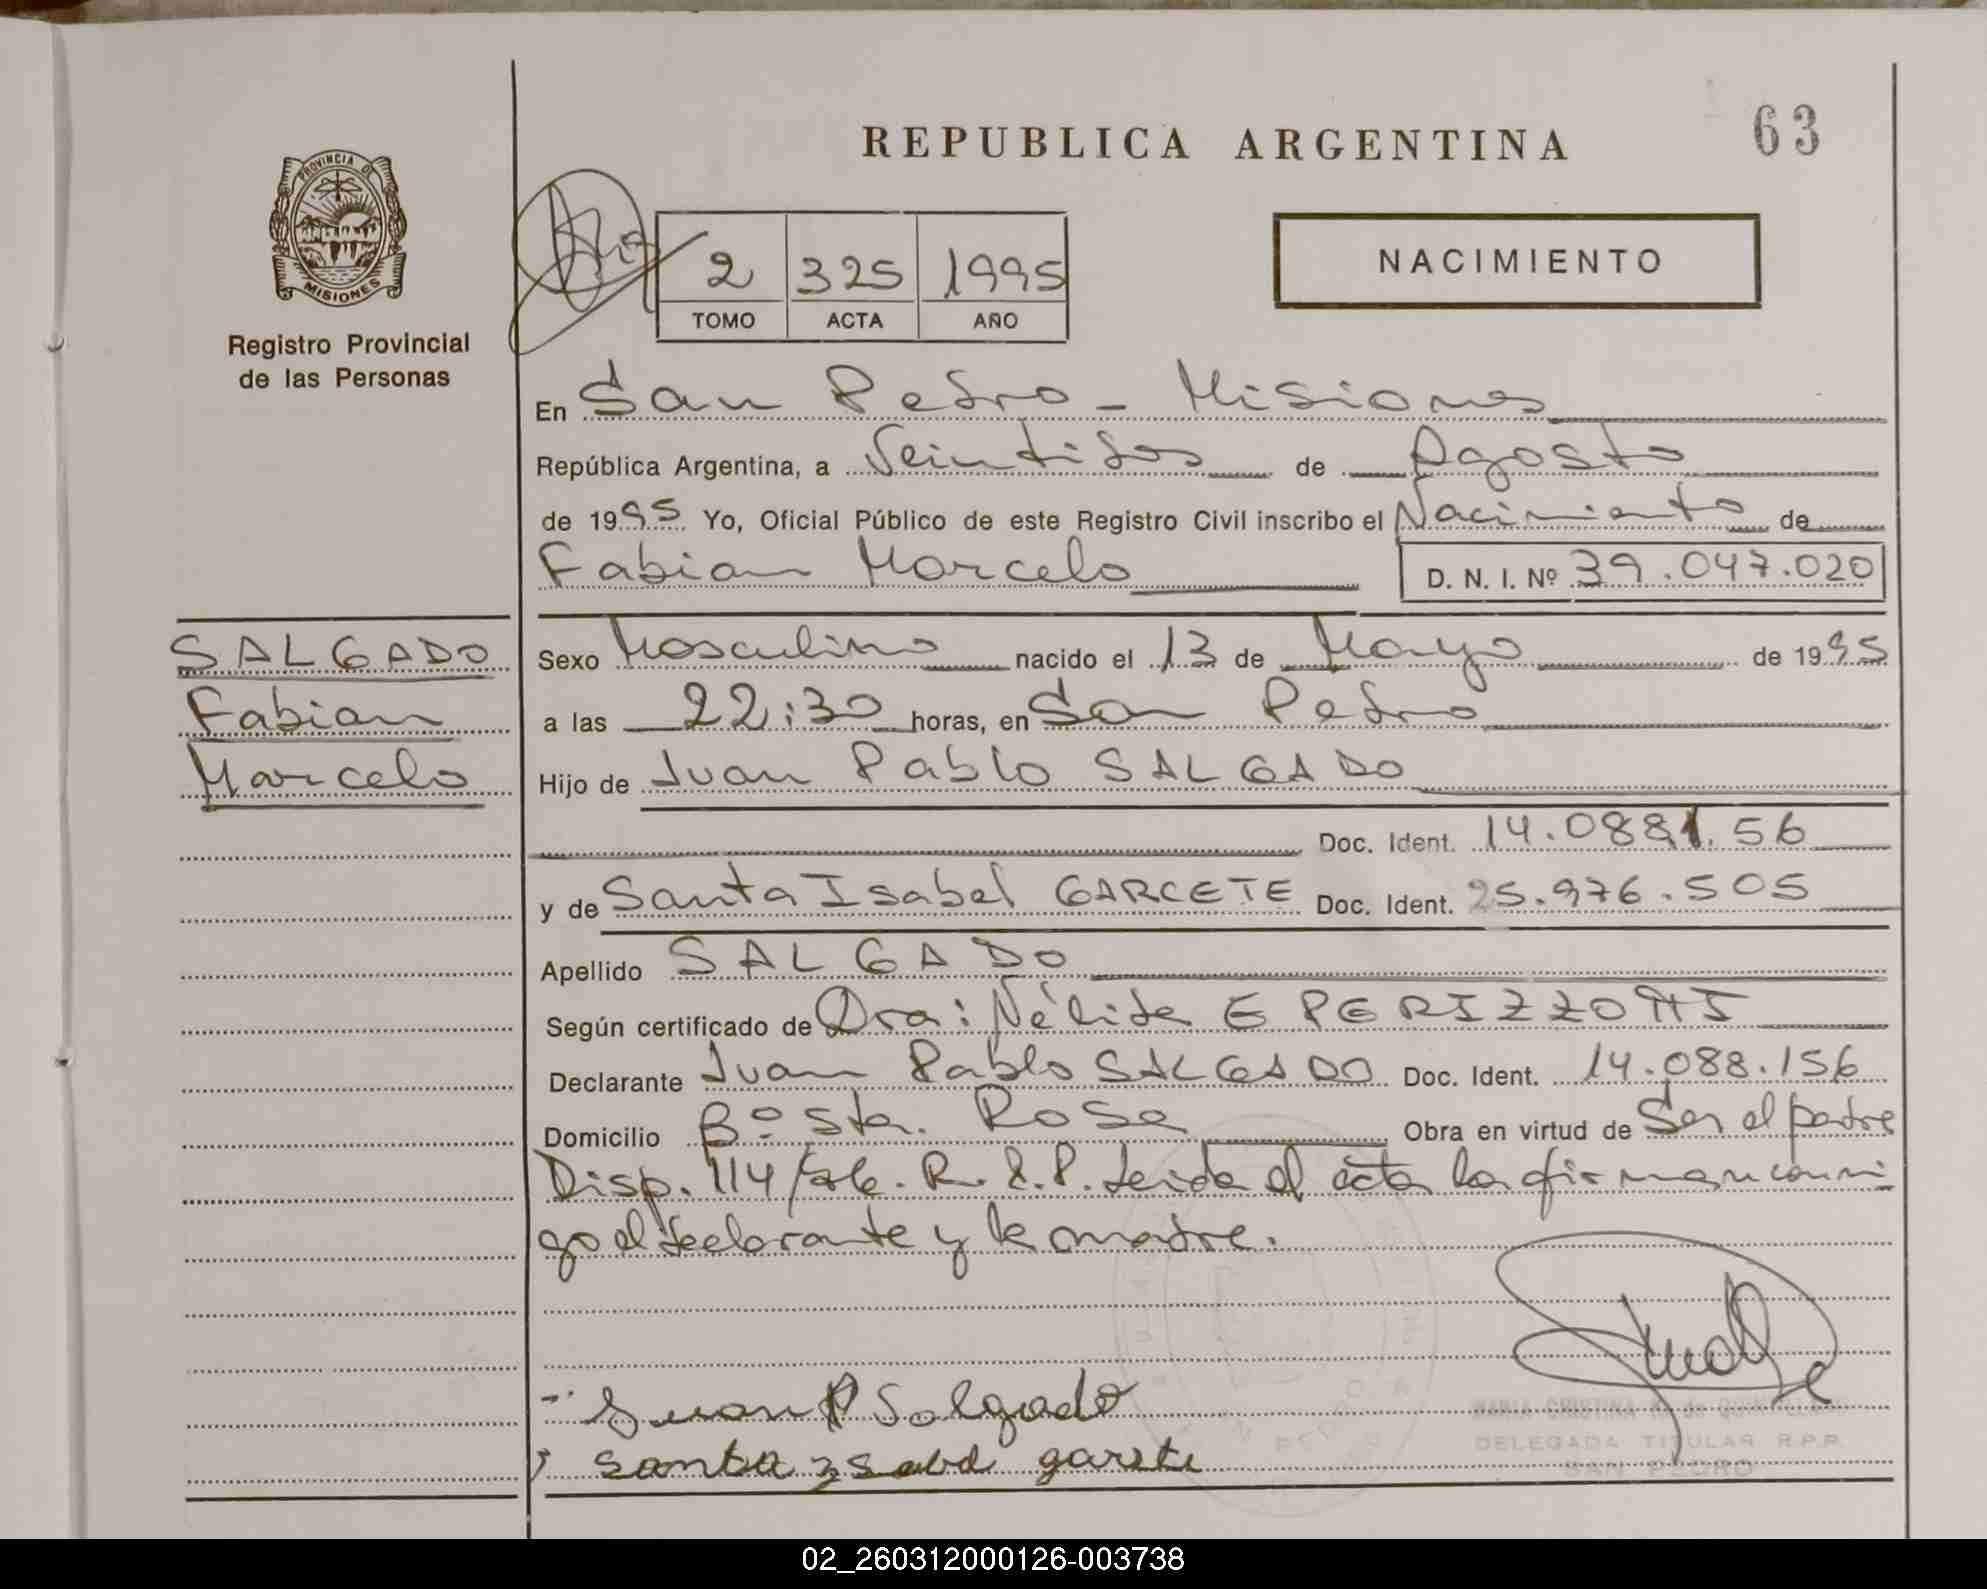 REPUBLICA ARGENTINA
63
PROVINCIA DE
MISIONES
Registro Provincial
de las Personas
2 325 1995
TOMO ACTA AÑO
NACIMIENTO
En San Pedro - Misiones
República Argentina, a Veintidos de Agosto
de 1995 Yo, Oficial Público de este Registro Civil inscribo el Nacimiento de
Fabian Marcelo D. N. I. Nº 39.047.020
SALGADO
Fabian
Marcelo
Sexo Masculino nacido el 13 de Mayo de 1995
a las 22:30 horas, en San Pedro
Hijo de Juan Pablo SALGADO
Doc. Ident. 14.0881.56
y de Santa Isabel GARCETE Doc. Ident. 25.976.505
Apellido SALGADO
Según certificado de Dra: Nélida E PERIZZOTTI
Declarante Juan Pablo SALGADO Doc. Ident. 14.088.156
Domicilio Bº Sta. Rosa Obra en virtud de Ser el padre
Disp. 114/ R.P.P. Leida el acta la firman conmi
go el declarante y la madre.
Juan P Salgado
santa ysabel garsete
MARIA CRISTINA de
DELEGADA TITULAR R.P.P.
SAN PEDRO
02_260312000126-003738